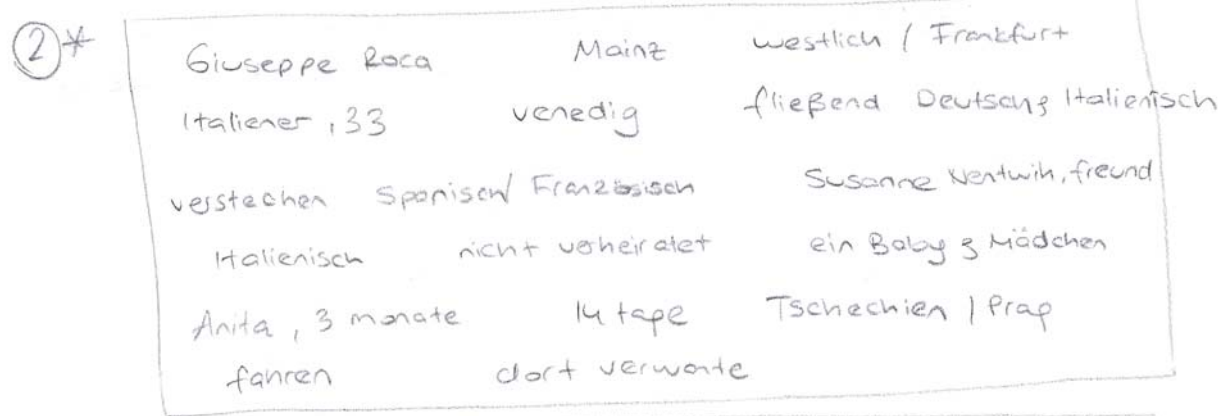 2*
Giuseppe Roca Mainz westlich / Frankfurt
Italiener, 33 venedig fließend Deutsch & Italienisch
verstechen Spanisch/ Französisch Susanne Nentwih, freund
Italienisch nicht verheiratet ein Baby & Mädchen
Anita, 3 monate 14 tage Tschechien / Prag
fahren dort verwante